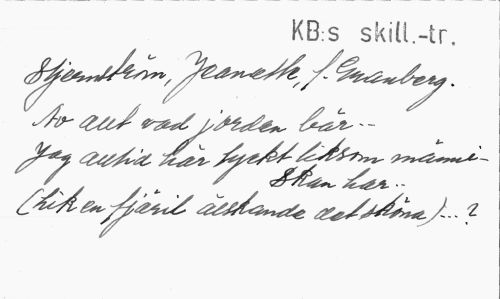 KB:s skill.-tr.
Stjernström, Jeanette, f. Granberg.
Av allt vad jorden bär --
Jag alltid här tyckt liksom männi-
skan har --
(Lik en fjäril älskande det sköna) --- ?